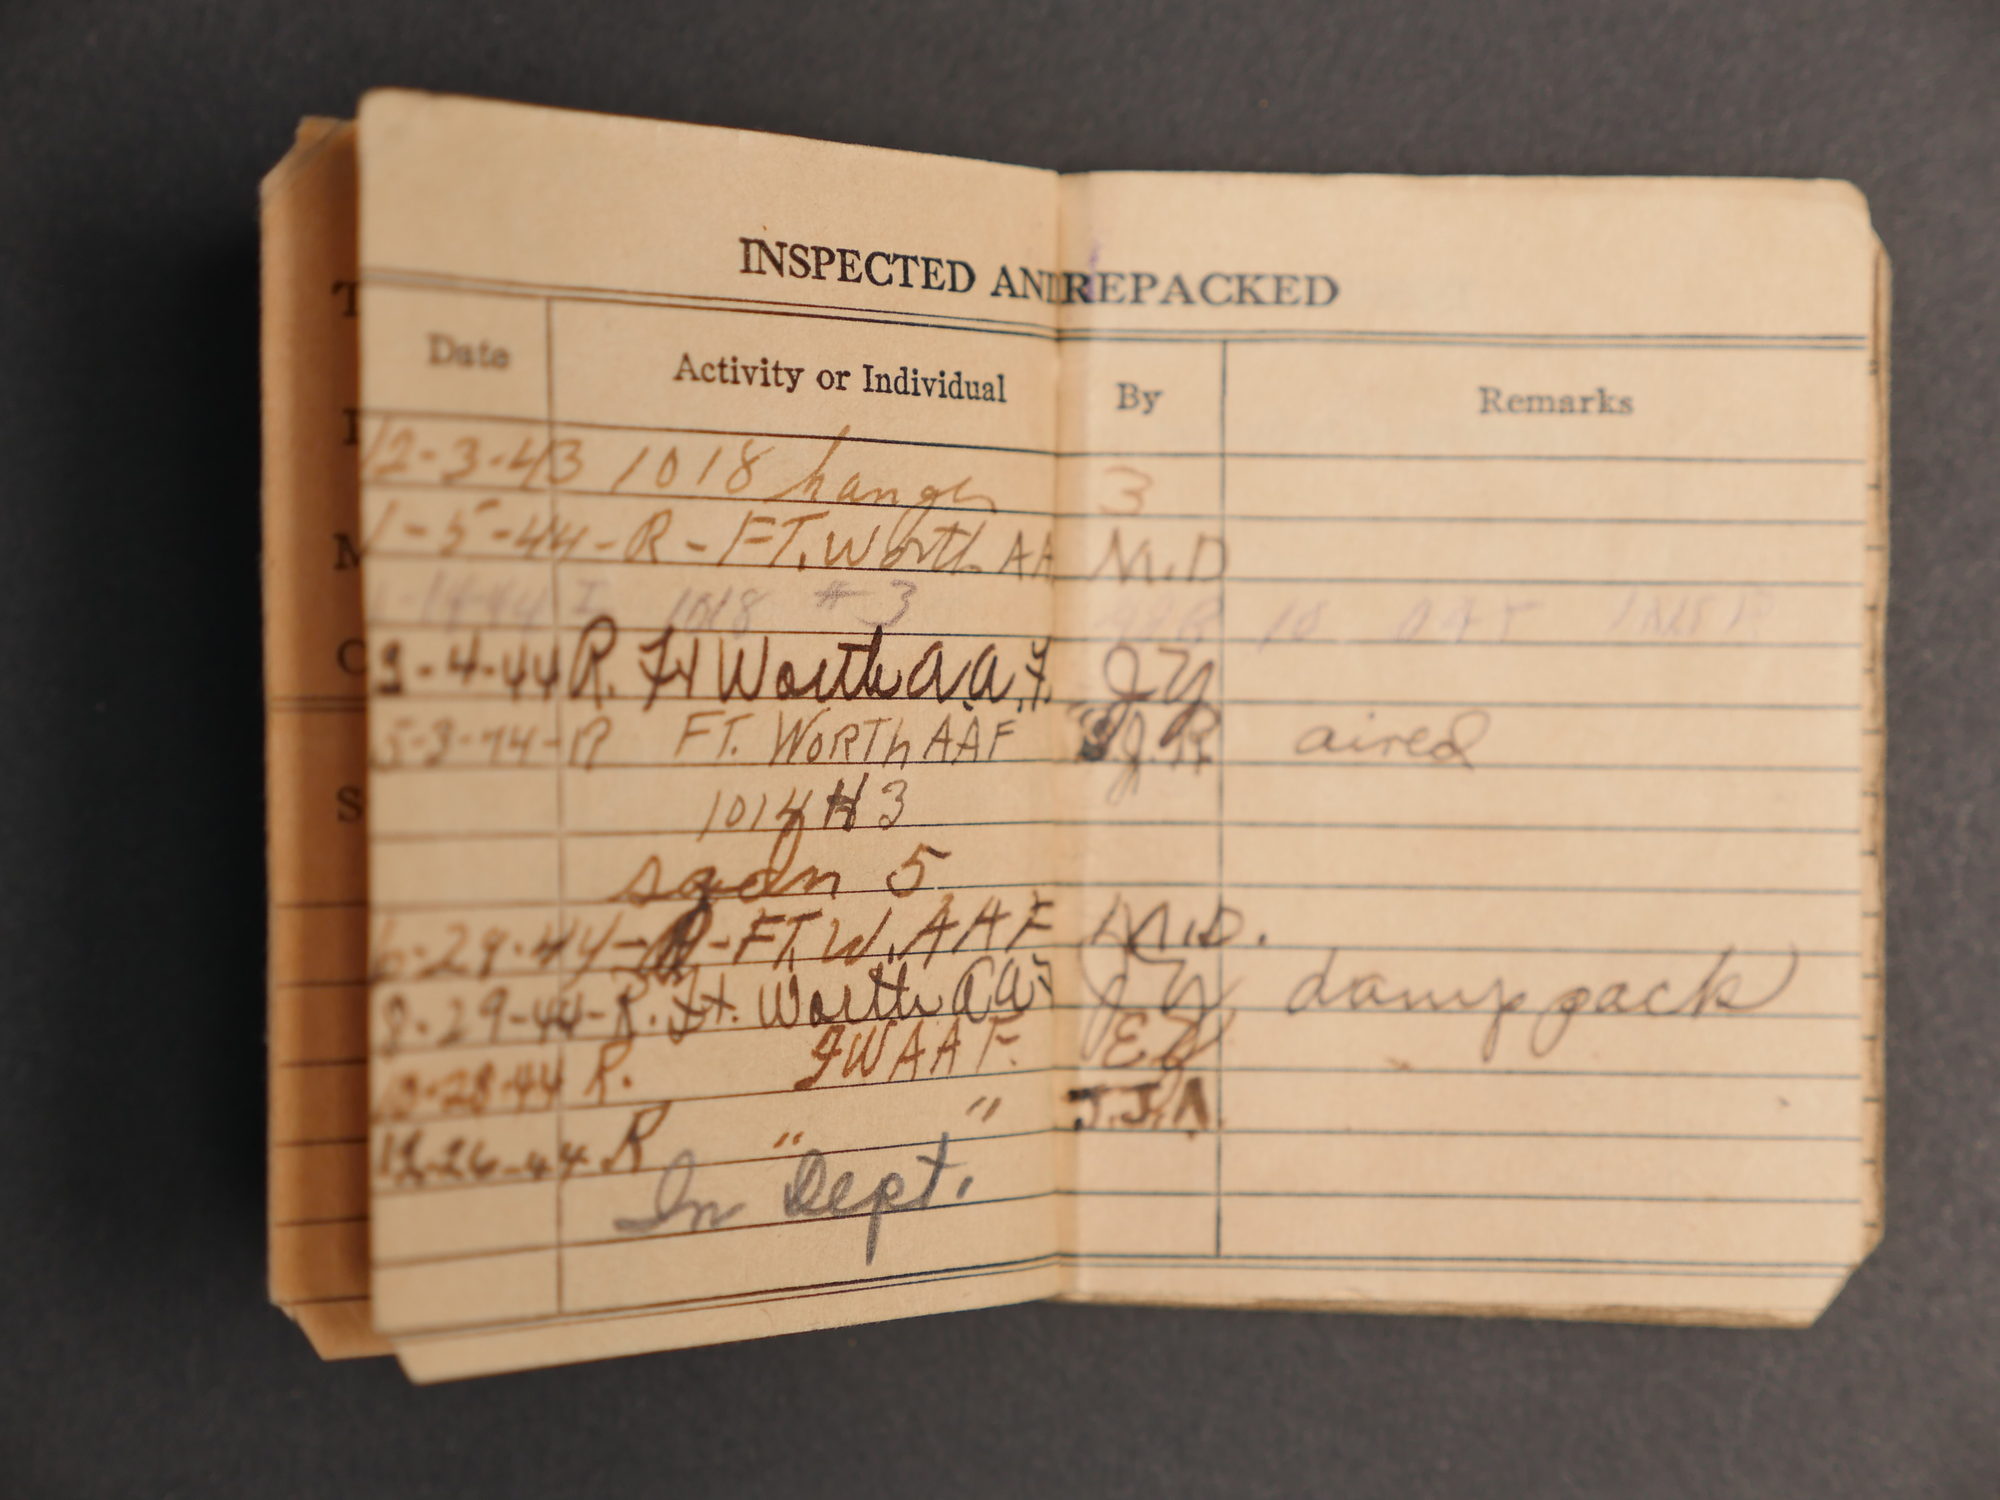 INSPECTED AND REPACKED
Date Activity or Individual By Remarks
12-3-43 1018 hanger 3
1-5-44-R-FT. Worth AA M.D
1-14-44 I 1018 #3 10
3-4-44 R. Ft Worth A.A.F. J Y
5-3-44-R FT. WORTH AAF J.R aired
1014 H 3
sqdn 5
6-29-44-R-FT.W. AAF M.D.
8-29-44-R. Ft. Worth AAF J Y damp pack
10-28-44 R. FWAAF. EY
12-26-44 R " " J.J.A.
In Dept.
T
I
M
C
S